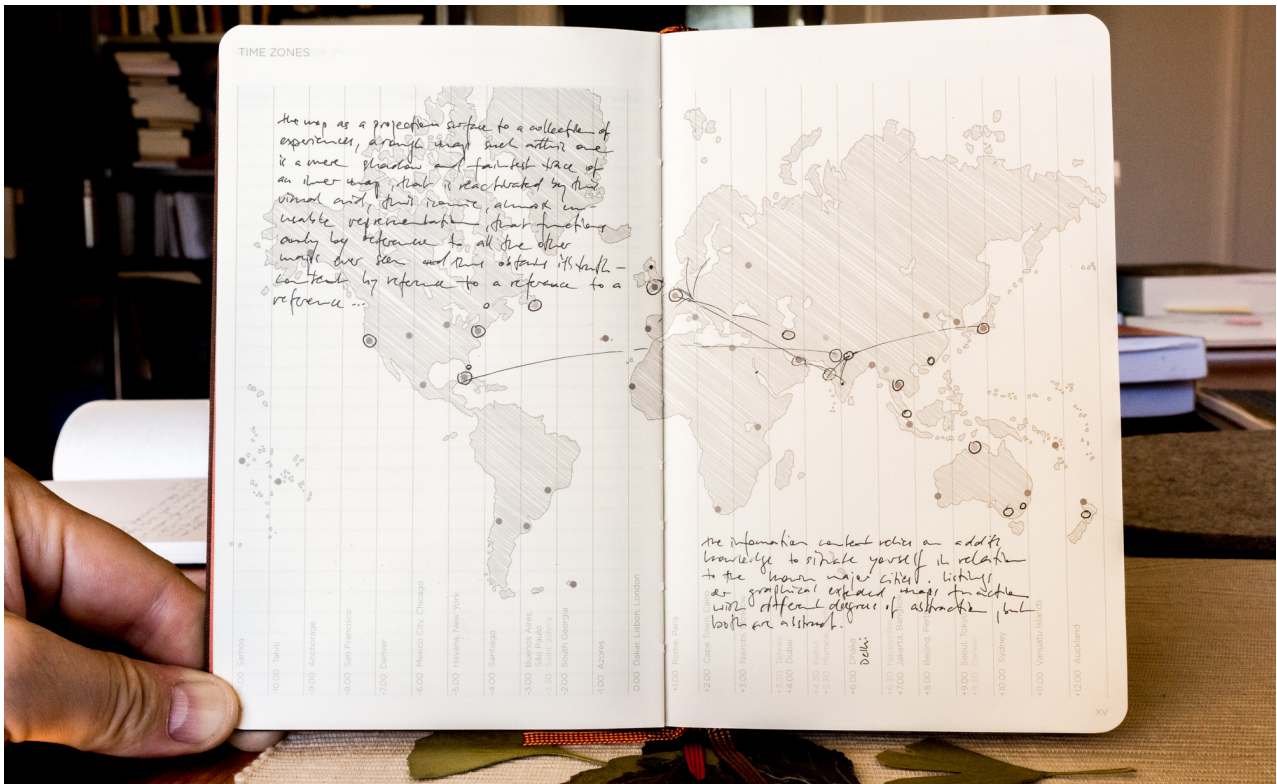 TIME ZONES
the map as a projection surface to a collection of
experiences, a rough map such as this one
is a mere shadow and faintest trace of
an inner map, that is reactivated by this
visual aid, this iconic, almost un-
useable representation, that functions
only by reference to all the other
maps ever seen and thus obtains its truth-
content by reference to a reference to a
reference ...
the information content relies on
knowledge to situate yourself in relation
to the known major cities. Listings
or graphical maps function
with different degrees of abstraction, but
both are abstract.
-11:00 Samoa
-10:00 Tahiti
-9:00 Anchorage
-8:00 San Francisco
-7:00 Denver
-6:00 Mexico City, Chicago
-5:00 Havana, New York
-4:00 Santiago
-3:00 Buenos Aires,
São Paulo
-2:00 South Georgia
-1:00 Azores
0:00 Dakar, Lisbon, London
+1:00 Rome, Paris
+2:00 Cape Town, Cairo
+3:00
+3:30 Tehran
+4:00 Dubai
+4:30 Kabul
+5:30
+6:00 Dhaka
Delhi
+6:30
+7:00 Jakarta,
+8:00 Beijing,
+9:00 Seoul, Tokyo
+9:30 Darwin
+10:00 Sydney
+11:00 Vanuatu Islands
+12:00 Auckland
XV